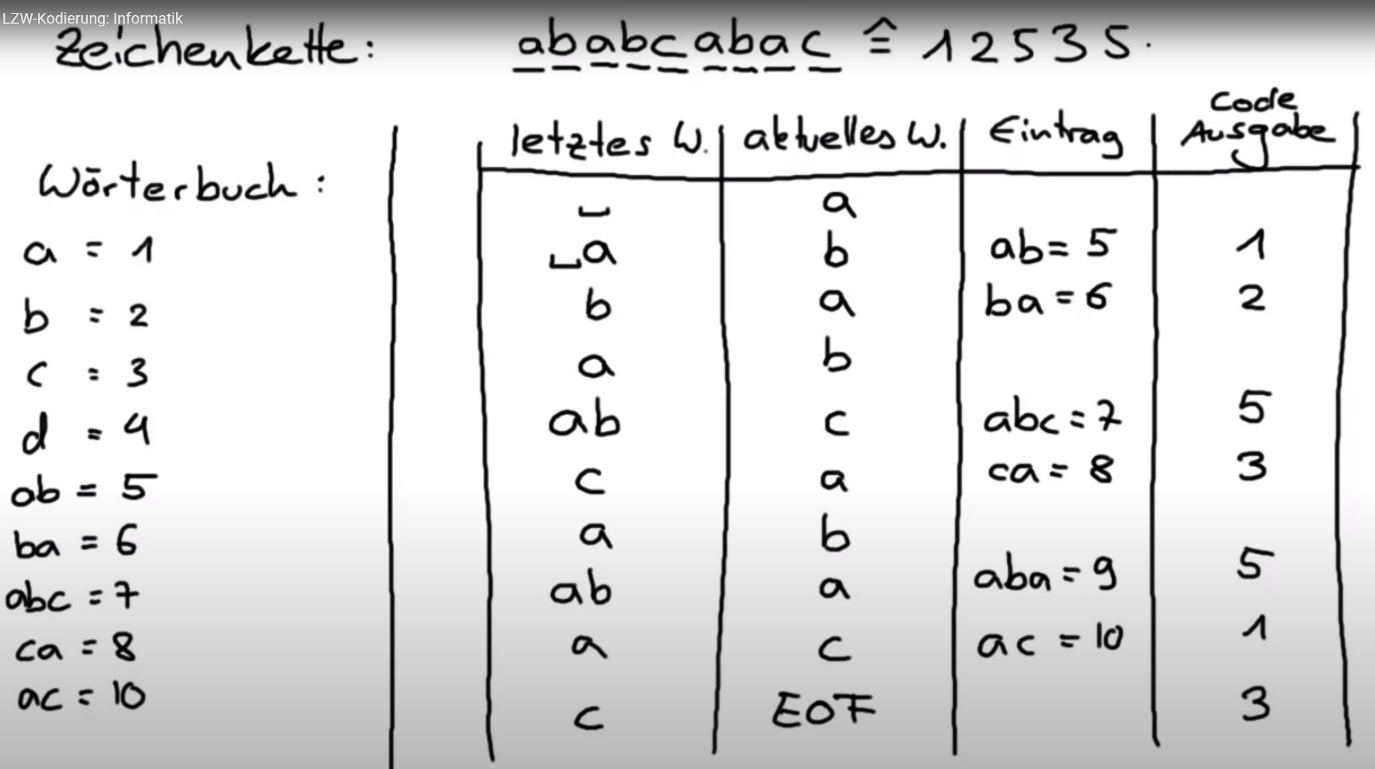 LZW-Kodierung: Informatik
Zeichenkette: ababcabac ≙ 12535.
Wörterbuch:
a = 1
b = 2
c = 3
d = 4
ab = 5
ba = 6
abc = 7
ca = 8
ac = 10
letztes W. aktuelles W. Eintrag Code Ausgabe
␣ a
␣a b ab = 5 1
b a ba = 6 2
a b
ab c abc = 7 5
c a ca = 8 3
a b
ab a aba = 9 5
a c ac = 10 1
c EOF 3